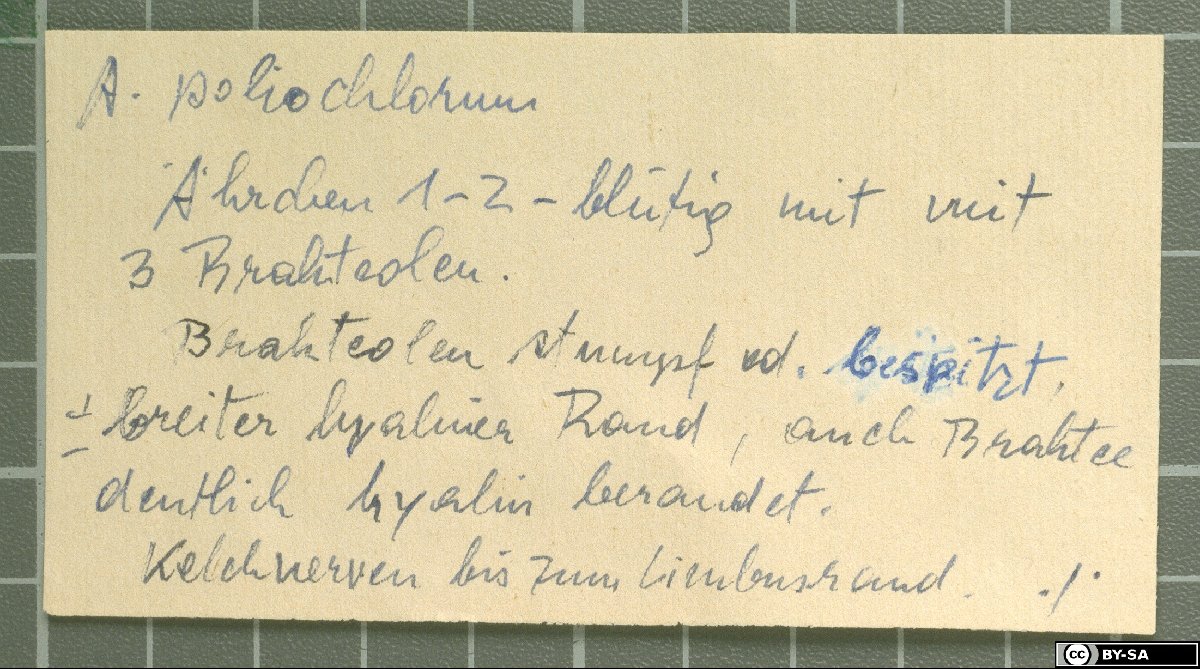 A. poliochlorum
Ährchen 1-2-blütig mit mit
3 Brakteolen.
Brakteolen stumpf od. bespitzt,
± breiter hyaliner Rand, auch Braktee
deutlich hyalin berandet.
Kelchnerven bis zum Limbusrand. ./.
CC BY-SA